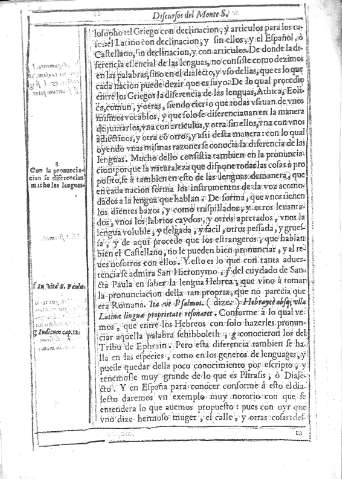 Discursos del Monte S.
losopho: el Griego con declinacion, y articulos para los ca-
sos: el Latino con declinacion, y sin ellos, y el Español, ò
Castellano, sin declinacion, y con articulos. De donde la di-
ferencia essencial de las lenguas, no consiste como deximos
en las palabras, sino en el dialecto, y vso dellas, que es lo que
cada nacion puede dezir que es suyo. De lo qual procedio
entre los Griegos la diferencia de las lenguas, Athica, Eoli-
ca, comun, y otras, siendo cierto que todas vsauan de vnos
mismos vocablos, y que solo se diferenciauan en la manera
de juntarlos, vna con articulos, y otra sin ellos, vna con vnos
adherentes, y otra cõ otros, y assi desta manera: con lo qual
oyendo vnas mismas razones se conocia la diferencia de las
lenguas. Mucho dello consistia tambien en la pronuncia-
cion: porque la naturaleza que dispone todas las cosas à pro
posito, se à tambien en esto de las lenguas de manera, que
en cada nacion forma los instrumentos de la voz acomo-
dados à la lengua que hablan. De forma, que vnos tienen
los dientes baxos, y como traspillados, y otros leuanta-
dos, vnos los labrios caydos, y otros apretados, vnos la
lengua voluble, y delgada, y facil, otros pessada, y grues-
sa, y de aqui procede que los estrangeros, que hablan
bien el Castellano, no le pueden bien pronunciar, y al re-
ues nosotros con ellos. Y esto es lo que con tanta aduer-
tencia se admira San Hieronymo, del cuydado de San-
cta Paula en saber la lengua Hebrea, que vino à tomar
la pronunciacion della tan propria, que no parecia que
era Romana. Ita vt Psalmos, (dize) Hebrayce absq; vlla
Latinæ linguæ proprietate resonaret. Conforme à lo qual ve-
mos, que entre los Hebreos con solo hazerles pronun-
ciar aquella palabra schibboleth, conocieron los del
Tribu de Ephrain. Pero esta diferencia tambien se ha-
lla en las especies, como en los generos de lenguages, y
puede quedar della poco conocimiento por escripto, y
tenemosle muy grande de lo que es Phrasis, ò Dialec-
cto. Y en España para conocer conforme à esto el dia-
lecto daremos vn exemplo muy notorio con que se
entendera lo que auemos propuesto: pues con oyr que
vno dize hermoso muger, el calle, y otras cosas des-
ta
8
Con la pronuncia-
cion se diferencian
muchas lenguas.
In vita S. Paulæ.
Iudicum cap. 12.